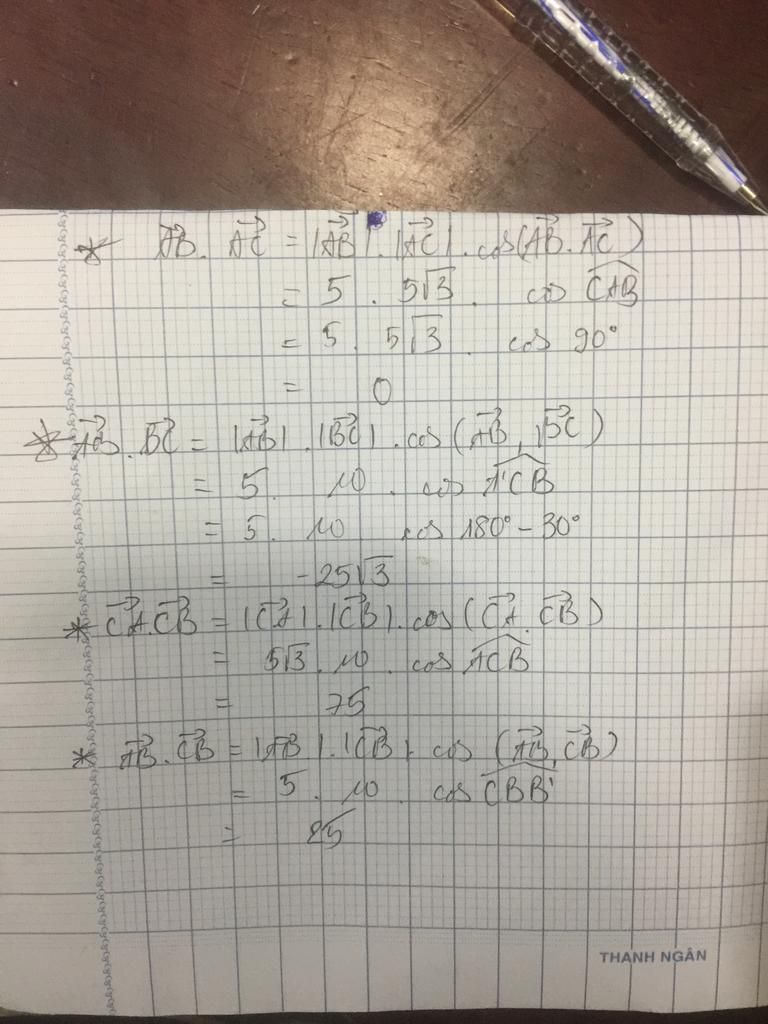 * $\overrightarrow{AB}. \overrightarrow{AC} = |\overrightarrow{AB}|.|\overrightarrow{AC}|. \cos(\overrightarrow{AB}.\overrightarrow{AC})$
$= 5 . 5\sqrt{3} . \cos \widehat{CAB}$
$= 5 . 5\sqrt{3} . \cos 90°$
$= 0$
* $\overrightarrow{AB}. \overrightarrow{BC} = |\overrightarrow{AB}|.|\overrightarrow{BC}|. \cos(\overrightarrow{AB}, \overrightarrow{BC})$
$= 5 . 10 . \cos \widehat{A'CB}$
$= 5 . 10 \cos 180° - 30°$
$= -25\sqrt{3}$
* $\overrightarrow{CA}.\overrightarrow{CB} = |\overrightarrow{CA}|.|\overrightarrow{CB}|. \cos(\overrightarrow{CA}.\overrightarrow{CB})$
$= 5\sqrt{3} . 10 . \cos \widehat{ACB}$
$= 75$
* $\overrightarrow{AB}. \overrightarrow{CB} = |\overrightarrow{AB}|.|\overrightarrow{CB}|. \cos (\overrightarrow{AB}, \overrightarrow{CB})$
$= 5 . 10 . \cos \widehat{CBB'}$
$= 25$
THANH NGÂN